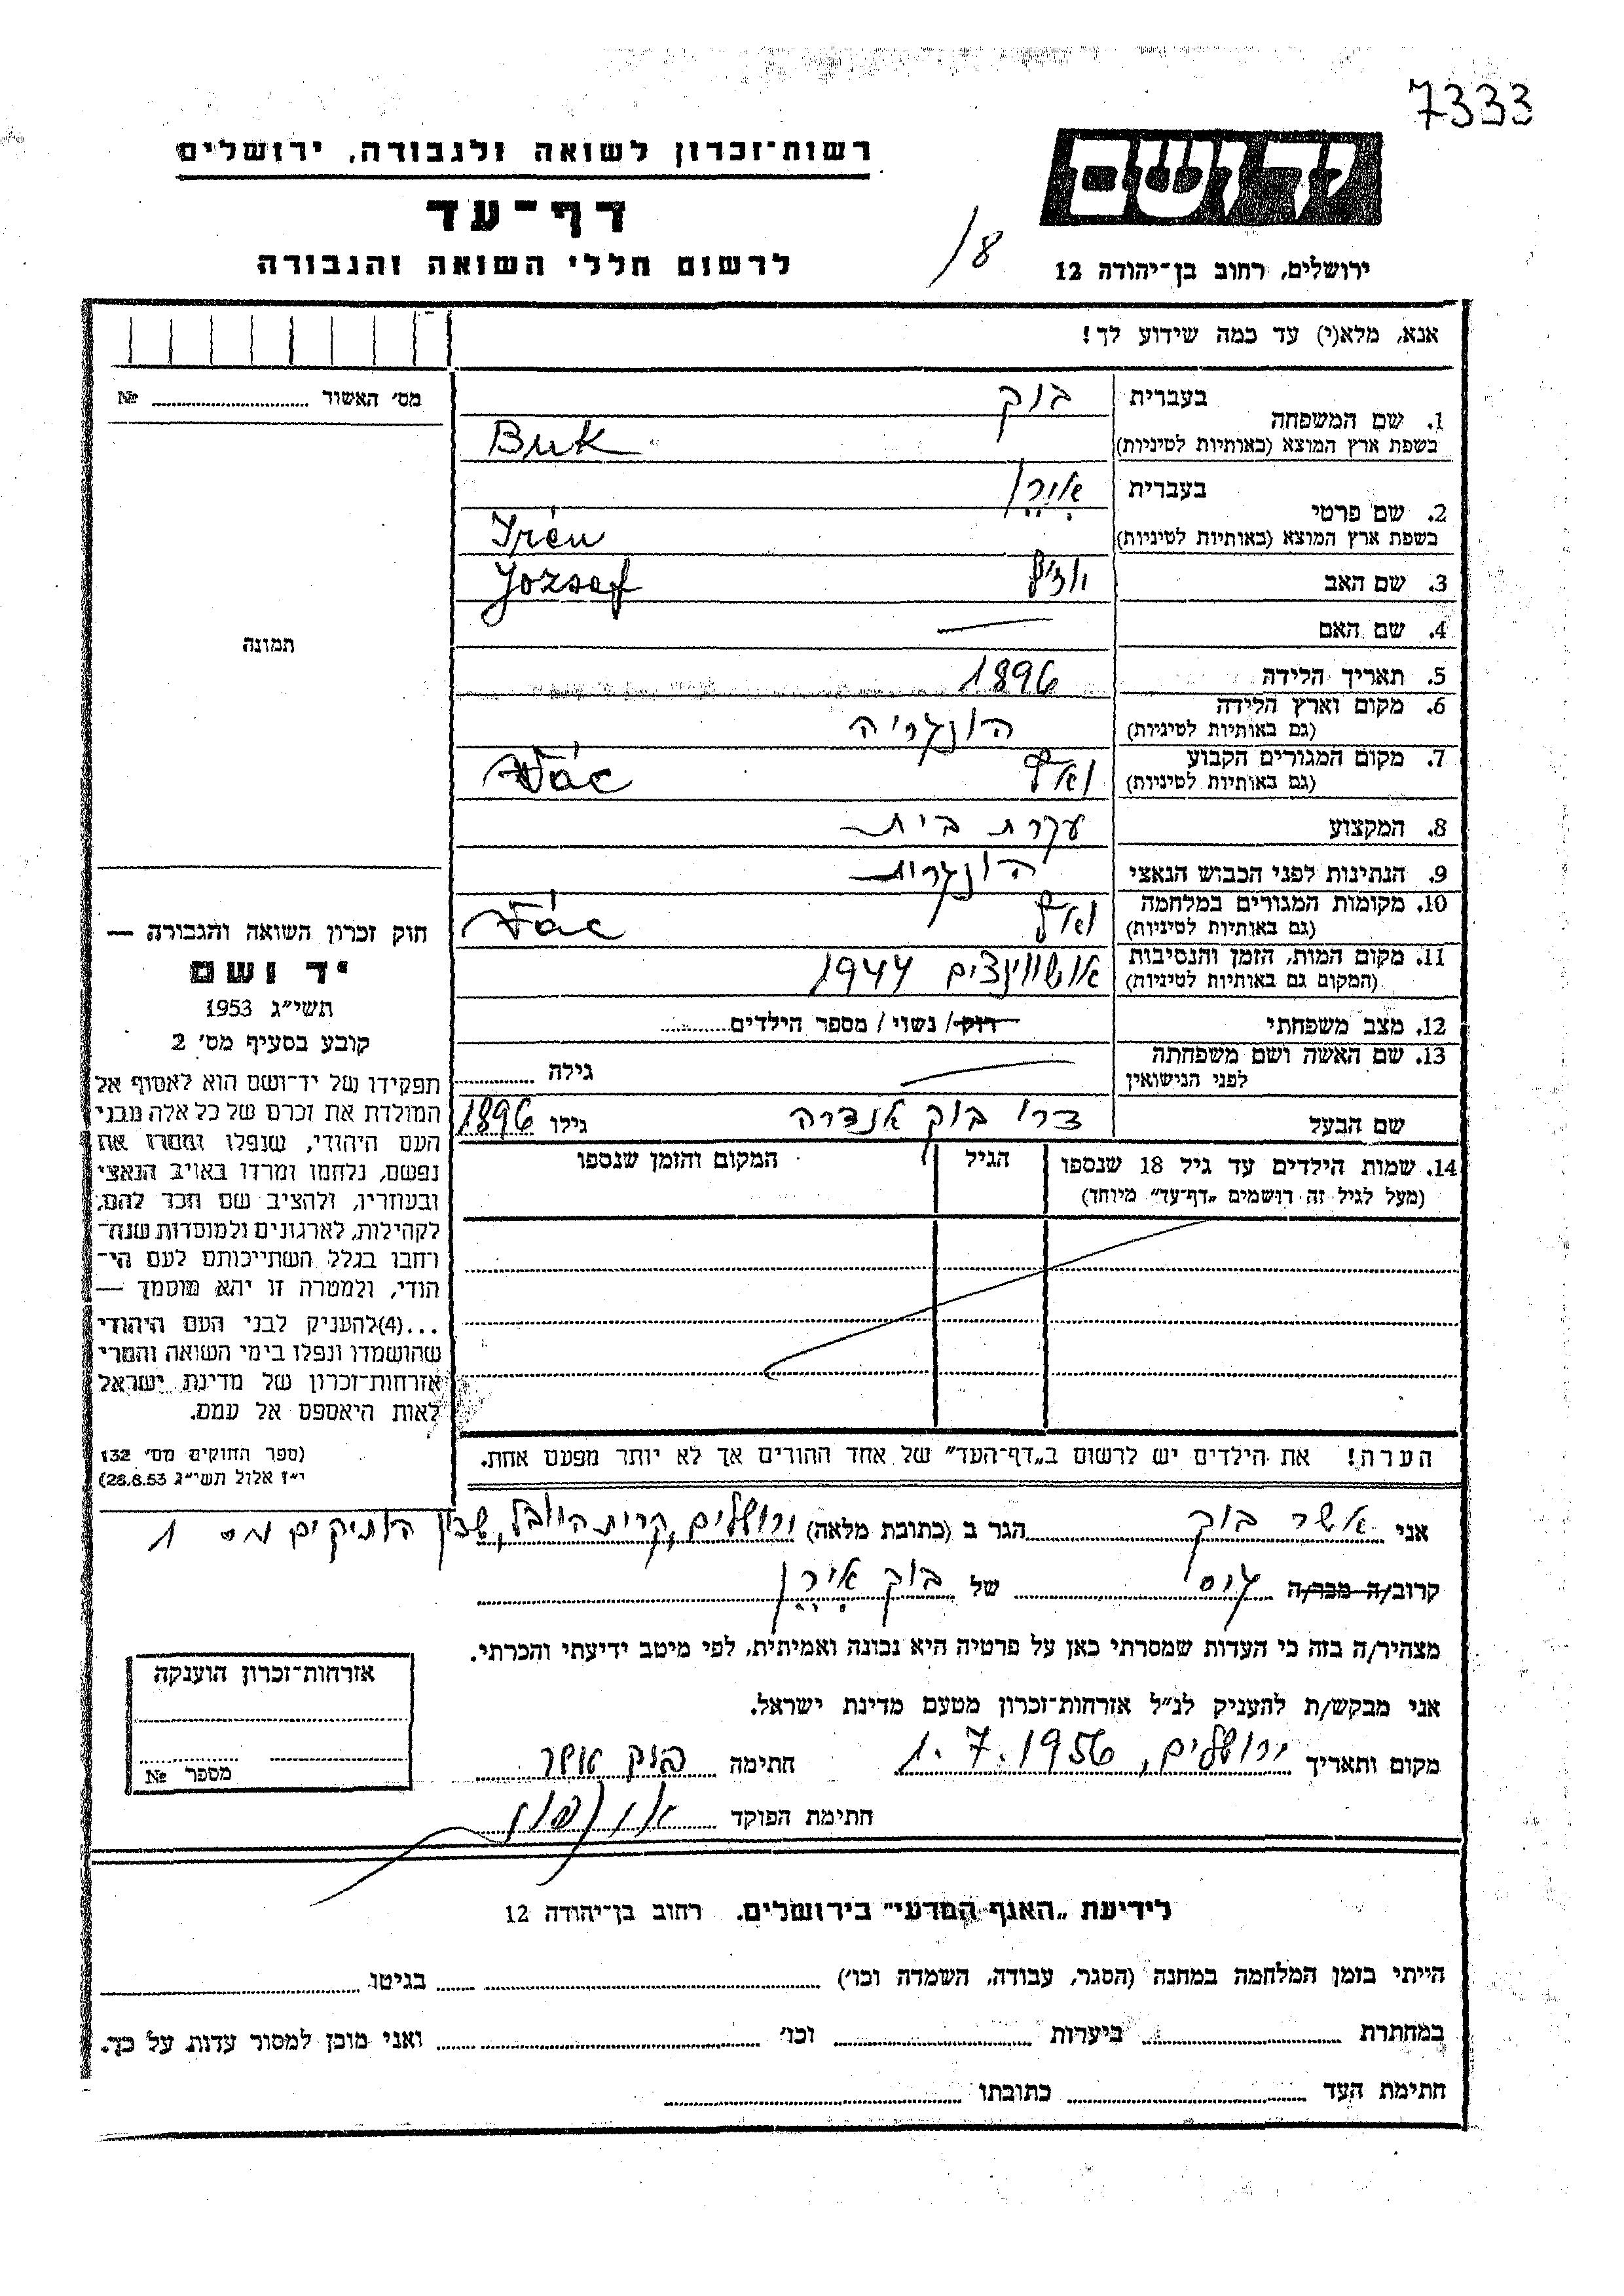 7333
רשות־זכרון לשואה ולגבורה, ירושלים
יד ושם
דף־עד
8/
לרשום חללי השואה והגבורה
ירושלים, רחוב בן־יהודה 12
אנא, מלא(י) עד כמה שידוע לך!
מס׳ האשור № 
1. שם המשפחה בעברית בוק
בשפת ארץ המוצא (באותיות לטיניות) Buk
2. שם פרטי בעברית אִירֵן
בשפת ארץ המוצא (באותיות לטיניות) Irén
3. שם האב יוזיף József
4. שם האם —
5. תאריך הלידה 1896
6. מקום וארץ הלידה (גם באותיות לטיניות) הונגריה
7. מקום המגורים הקבוע (גם באותיות לטיניות) ואץ Vác
8. המקצוע עקרת בית
9. הנתינות לפני הכבוש הנאצי הונגרית
10. מקומות המגורים במלחמה (גם באותיות לטיניות) ואץ Vác
11. מקום המות, הזמן והנסיבות (המקום גם באותיות לטיניות) אושווינצים 1944
12. מצב משפחתי רוק/ נשוי / מספר הילדים
13. שם האשה ושם משפחתה לפני הנישואין — גילה
שם הבעל בוק אנדרה גילו 1896
14. שמות הילדים עד גיל 18 שנספו (מעל לגיל זה רושמים „דף־עד״ מיוחד) הגיל המקום והזמן שנספו
תמונה
חוק זכרון השואה והגבורה —
יד ושם
תשי״ג 1953
קובע בסעיף מס׳ 2
תפקידו של יד־ושם הוא לאסוף אל
המולדת את זכרם של כל אלה מבני
העם היהודי, שנפלו ומסרו את
נפשם, נלחמו ומרדו באויב הנאצי
ובעוזריו, ולהציב שם וזכר להם,
לקהילות, לארגונים ולמוסדות שנח־
רחבו בגלל השתייכותם לעם הי־
הודי, ולמטרה זו יהא מוסמך —
...(4)להעניק לבני העם היהודי
שהושמדו ונפלו בימי השואה והמרי
אזרחות־זכרון של מדינת ישראל
לאות היאספם אל עמם.
(ספר החוקים מס׳ 132
י״ז אלול תשי״ג 28.8.53)
הערה! את הילדים יש לרשום ב„דף־העד״ של אחד ההורים אך לא יותר מפעם אחת.
אני אשר בוק הגר ב (כתובת מלאה) ירושלים, קרית היובל, שכון הותיקים מס 1
קרוב/ה מכר/ה גיס של בוק אִירֵן
מצהיר/ה בזה כי העדות שמסרתי כאן על פרטיה היא נכונה ואמיתית, לפי מיטב ידיעתי והכרתי.
אני מבקש/ת להעניק לנ״ל אזרחות־זכרון מטעם מדינת ישראל.
מקום ותאריך ירושלים, 1.7.1956 חתימה בוק אשר
חתימת הפוקד
אזרחות־זכרון הוענקה
מספר №
לידיעת „האגף המדעי״ בירושלים. רחוב בן־יהודה 12
הייתי בזמן המלחמה במחנה (הסגר, עבודה, השמדה וכו׳) בגיטו
במחתרת ביערות וכו׳ ואני מוכן למסור עדות על כך.
חתימת העד כתובתו